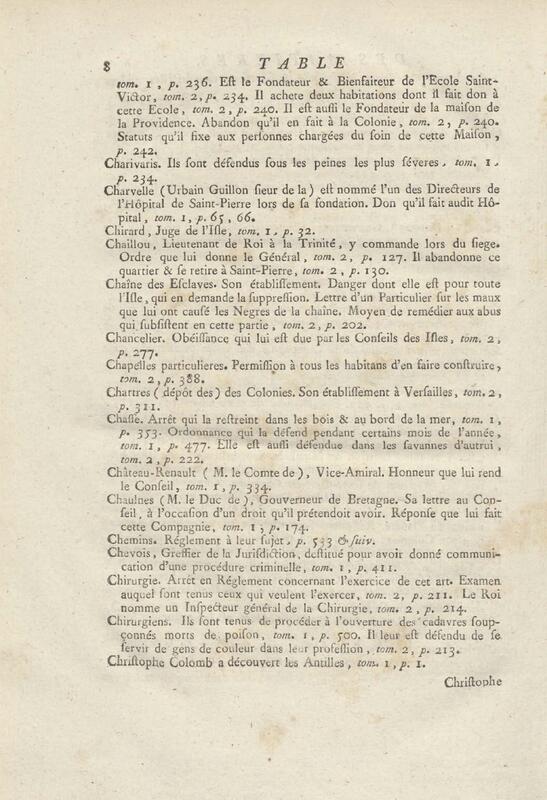 8 TABLE
tom. 1, p. 236. Eſt le Fondateur & Bienfaiteur de l'Ecole Saint-
Victor, tom. 2, p. 234. Il achete deux habitations dont il fait don à
cette Ecole, tom. 2, p. 240. Il eſt auſſi le Fondateur de la maiſon de
la Providence. Abandon qu'il en fait à la Colonie, tom. 2, p. 240.
Statuts qu'il fixe aux perſonnes chargées du ſoin de cette Maiſon,
p. 242.
Charivaris. Ils ſont défendus ſous les peines les plus ſéveres, tom. 1,
p. 234.
Charvelle (Urbain Guillon ſieur de la) eſt nommé l'un des Directeurs de
l'Hôpital de Saint-Pierre lors de ſa fondation. Don qu'il fait audit Hô-
pital, tom. 1, p. 65, 66.
Chirard, Juge de l'Iſle, tom. 1, p. 32.
Chaillou, Lieutenant de Roi à la Trinité, y commande lors du ſiege.
Ordre que lui donne le Général, tom. 2, p. 127. Il abandonne ce
quartier & ſe retire à Saint-Pierre, tom. 2, p. 130.
Chaîne des Eſclaves. Son établiſſement. Danger dont elle eſt pour toute
l'Iſle, qui en demande la ſuppreſſion. Lettre d'un Particulier ſur les maux
que lui ont cauſé les Negres de la chaîne. Moyen de remédier aux abus
qui ſubſiſtent en cette partie, tom. 2, p. 202.
Chancelier. Obéiſſance qui lui eſt due par les Conſeils des Iſles, tom. 2,
p. 277.
Chapelles particulieres. Permiſſion à tous les habitans d'en faire conſtruire,
tom. 2, p. 388.
Chartres (dépôt des) des Colonies. Son établiſſement à Verſailles, tom. 2,
p. 311.
Chaſſe. Arrêt qui la reſtreint dans les bois & au bord de la mer, tom. 1,
p. 353. Ordonnance qui la défend pendant certains mois de l'année,
tom. 1, p. 477. Elle eſt auſſi défendue dans les ſavannes d'autrui,
tom. 2, p. 222.
Château-Renault (M. le Comte de), Vice-Amiral. Honneur que lui rend
le Conſeil, tom. 1, p. 334.
Chaulnes (M. le Duc de), Gouverneur de Bretagne. Sa lettre au Con-
ſeil, à l'occaſion d'un droit qu'il prétendoit avoir. Réponſe que lui fait
cette Compagnie, tom. 1, p. 174.
Chemins. Réglement à leur ſujet, p. 533 & ſuiv.
Chevois, Greffier de la Juriſdiction, deſtitué pour avoir donné communi-
cation d'une procédure criminelle, tom. 1, p. 411.
Chirurgie. Arrêt en Réglement concernant l'exercice de cet art. Examen
auquel ſont tenus ceux qui veulent l'exercer, tom. 2, p. 211. Le Roi
nomme un Inſpecteur général de la Chirurgie, tom. 2, p. 214.
Chirurgiens. Ils ſont tenus de procéder à l'ouverture des cadavres ſoup-
çonnés morts de poiſon, tom. 1, p. 500. Il leur eſt défendu de ſe
ſervir de gens de couleur dans leur profeſſion, tom. 2, p. 213.
Chriſtophe Colomb a découvert les Antilles, tom. 1, p. 1.
Chriſtophe